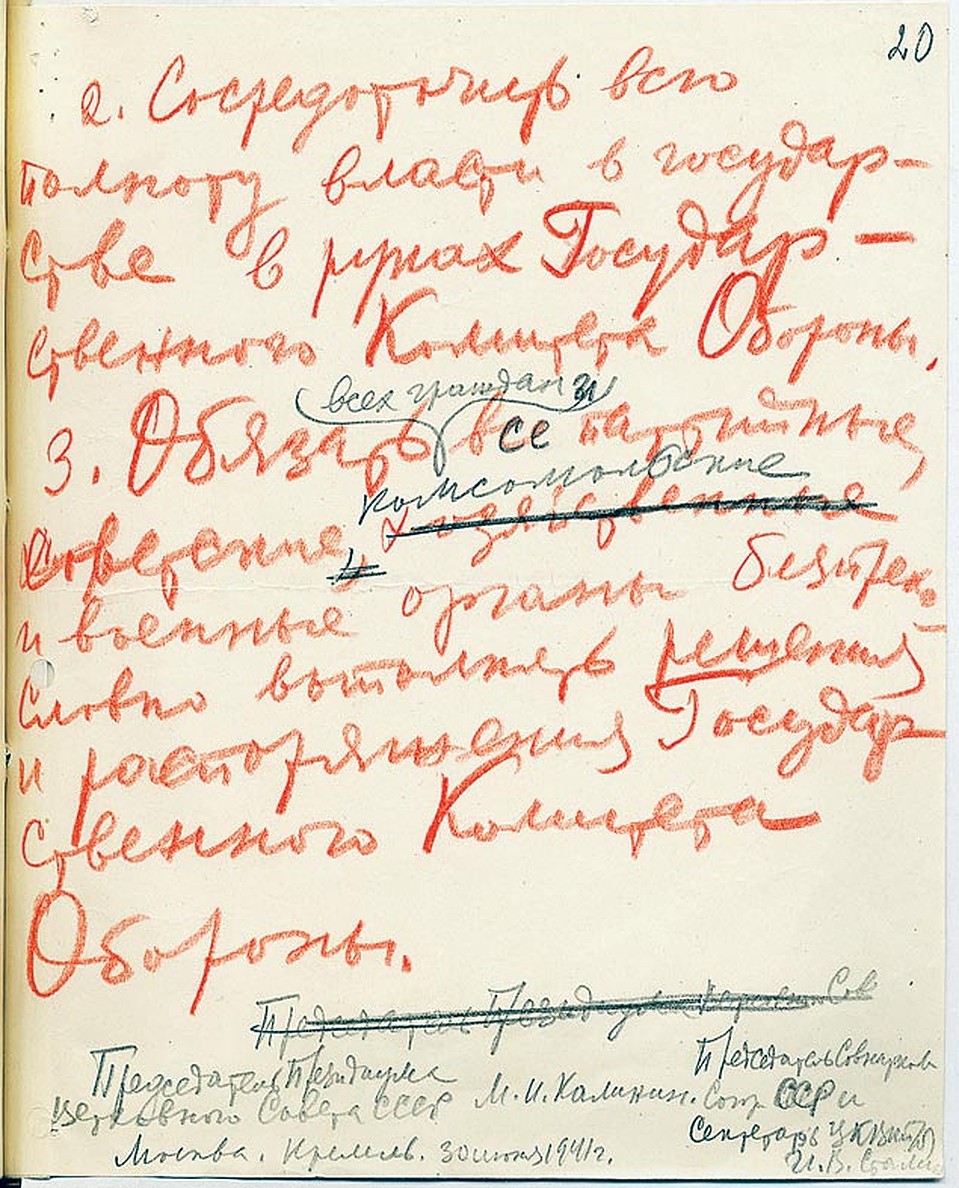 20
2. Сосредоточить всю
полноту власти в государ-
стве в руках Государ-
ственного Комитета Обороны.
всех граждан и
3. Обязать все партийные,
комсомольские
советские, хозяйственные
и военные органы безпреко-
словно выполнять решения
и распоряжения Государ-
ственного Комитета
Обороны.
Председатель Президиума Верховн Сов
Председатель Президиума
Верховного Совета СССР М. И. Калинин.
Председатель Совнаркома
Союз ССР и
Секретарь ЦК ВКП(б)
И. В. Сталин
Москва. Кремль. 30 июня 1941 г.